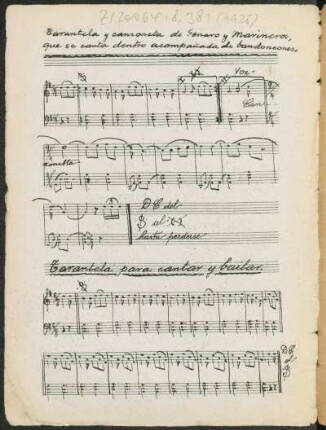 Tarantela y canzoneta de Genaro y Marinero,
que se canta dentro acompañada de bandoneones
Voz-
Can-
zonetta
D.C. del
al
hasta perderse
Tarantela para cantar y bailar.
D.C.
al